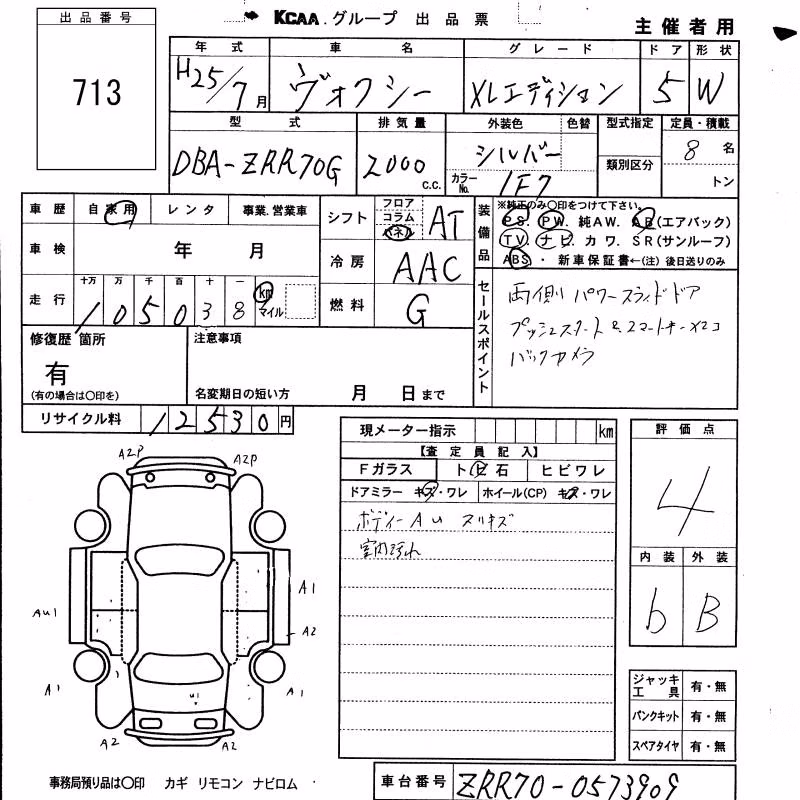 KCAA グループ 出品票
主催者用
出品番号
713
年式 車名 グレード ドア 形状
H25/7月 ヴォクシー XLエディション 5 W
型式 排気量 外装色 色替 型式指定 定員・積載
DBA-ZRR70G 2000 C.C. シルバー 8 名
カラーNo. 1F7 類別区分 トン
車歴 自家用 レンタ 事業.営業車
車検 年 月
走行 十万 万 千 百 十 一
105038 km マイル
シフト フロア コラム パネル AT
冷房 AAC
燃料 G
装備品
※純正のみ〇印をつけて下さい。
PS. PW. 純AW. AB(エアバック)
TV. ナビ. カワ. SR(サンルーフ)
ABS ・ 新車保証書←(注) 後日送りのみ
セールスポイント
両側パワースライドドア
プッシュスタート&スマートキー×2コ
バックカメラ
修復歴 箇所
有
(有の場合は〇印を)
注意事項
名変期日の短い方 月 日まで
リサイクル料 12530円
現メーター指示 km
【査定員記入】
Fガラス トビ石 ヒビワレ
ドアミラー キズ・ワレ ホイール(CP) キズ・ワレ
ボディー AU スリキズ
室内汚れ
評価点
4
内装 外装
b B
A2P A2P
AU1
A1
A2
A1
U1
A1
A2
A2
ジャッキ工具 有・無
パンクキット 有・無
スペアタイヤ 有・無
事務局預り品は〇印 カギ リモコン ナビロム
車台番号 ZRR70-0573909